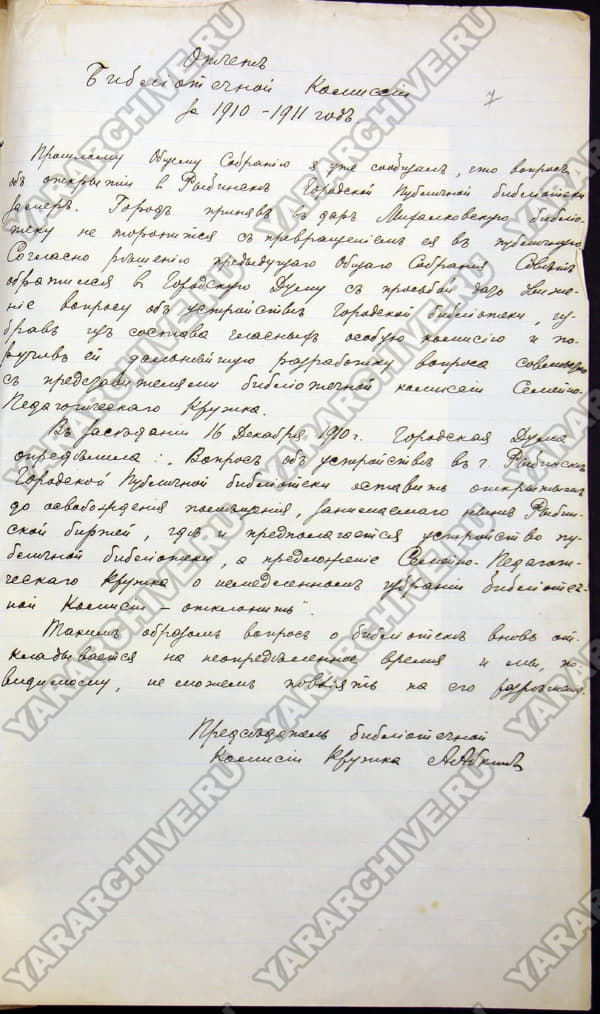 Отчетъ
Библіотечной Комиссіи
за 1910-1911 годъ
7
Прошлому Общему Собранію я уже сообщалъ, что вопросъ
объ открытіи в Рыбинскѣ Городской Публичной библіотеки
замеръ. Городъ принявъ въ даръ Михалковскую библіо-
теку не торопится съ превращеніемъ ея въ публичную.
Согласно рѣшенію предыдущаго Общаго Собранія Совѣтъ
обратился в Городскую Думу съ просьбой дать движе-
ніе вопросу объ устройствѣ Городской библіотеки, из-
бравъ изъ состава гласныхъ особую комисію и по-
ручивъ ей дальнѣйшую разработку вопроса совместно
съ представителями библіотечной комиссіи Семейно-
Педагогическаго Кружка.
Въ засѣданіи 16 Декабря 1910 г. Городская Дума
опредѣлила: "Вопросъ объ устройствѣ въ г. Рыбинскѣ
Городской Публичной библіотеки оставить открытымъ
до освобожденія помѣщенія, занимаемаго нынѣ Рыбин-
ской биржей, гдѣ и предполагается устройство пу-
бличной библіотеки, а предложеніе Семейно-Педагоги-
ческаго Кружка о немедленномъ избраніи библіотеч-
ной Комисіи - отклонить".
Такимъ образомъ вопросъ о библіотекѣ вновь от-
кладывается на неопредѣленное время и мы, по-
видимому, не можемъ повліять на его разрѣшеніе.
Предсѣдатель библіотечной
Комисіи Кружка
YARARCHIVE.RU